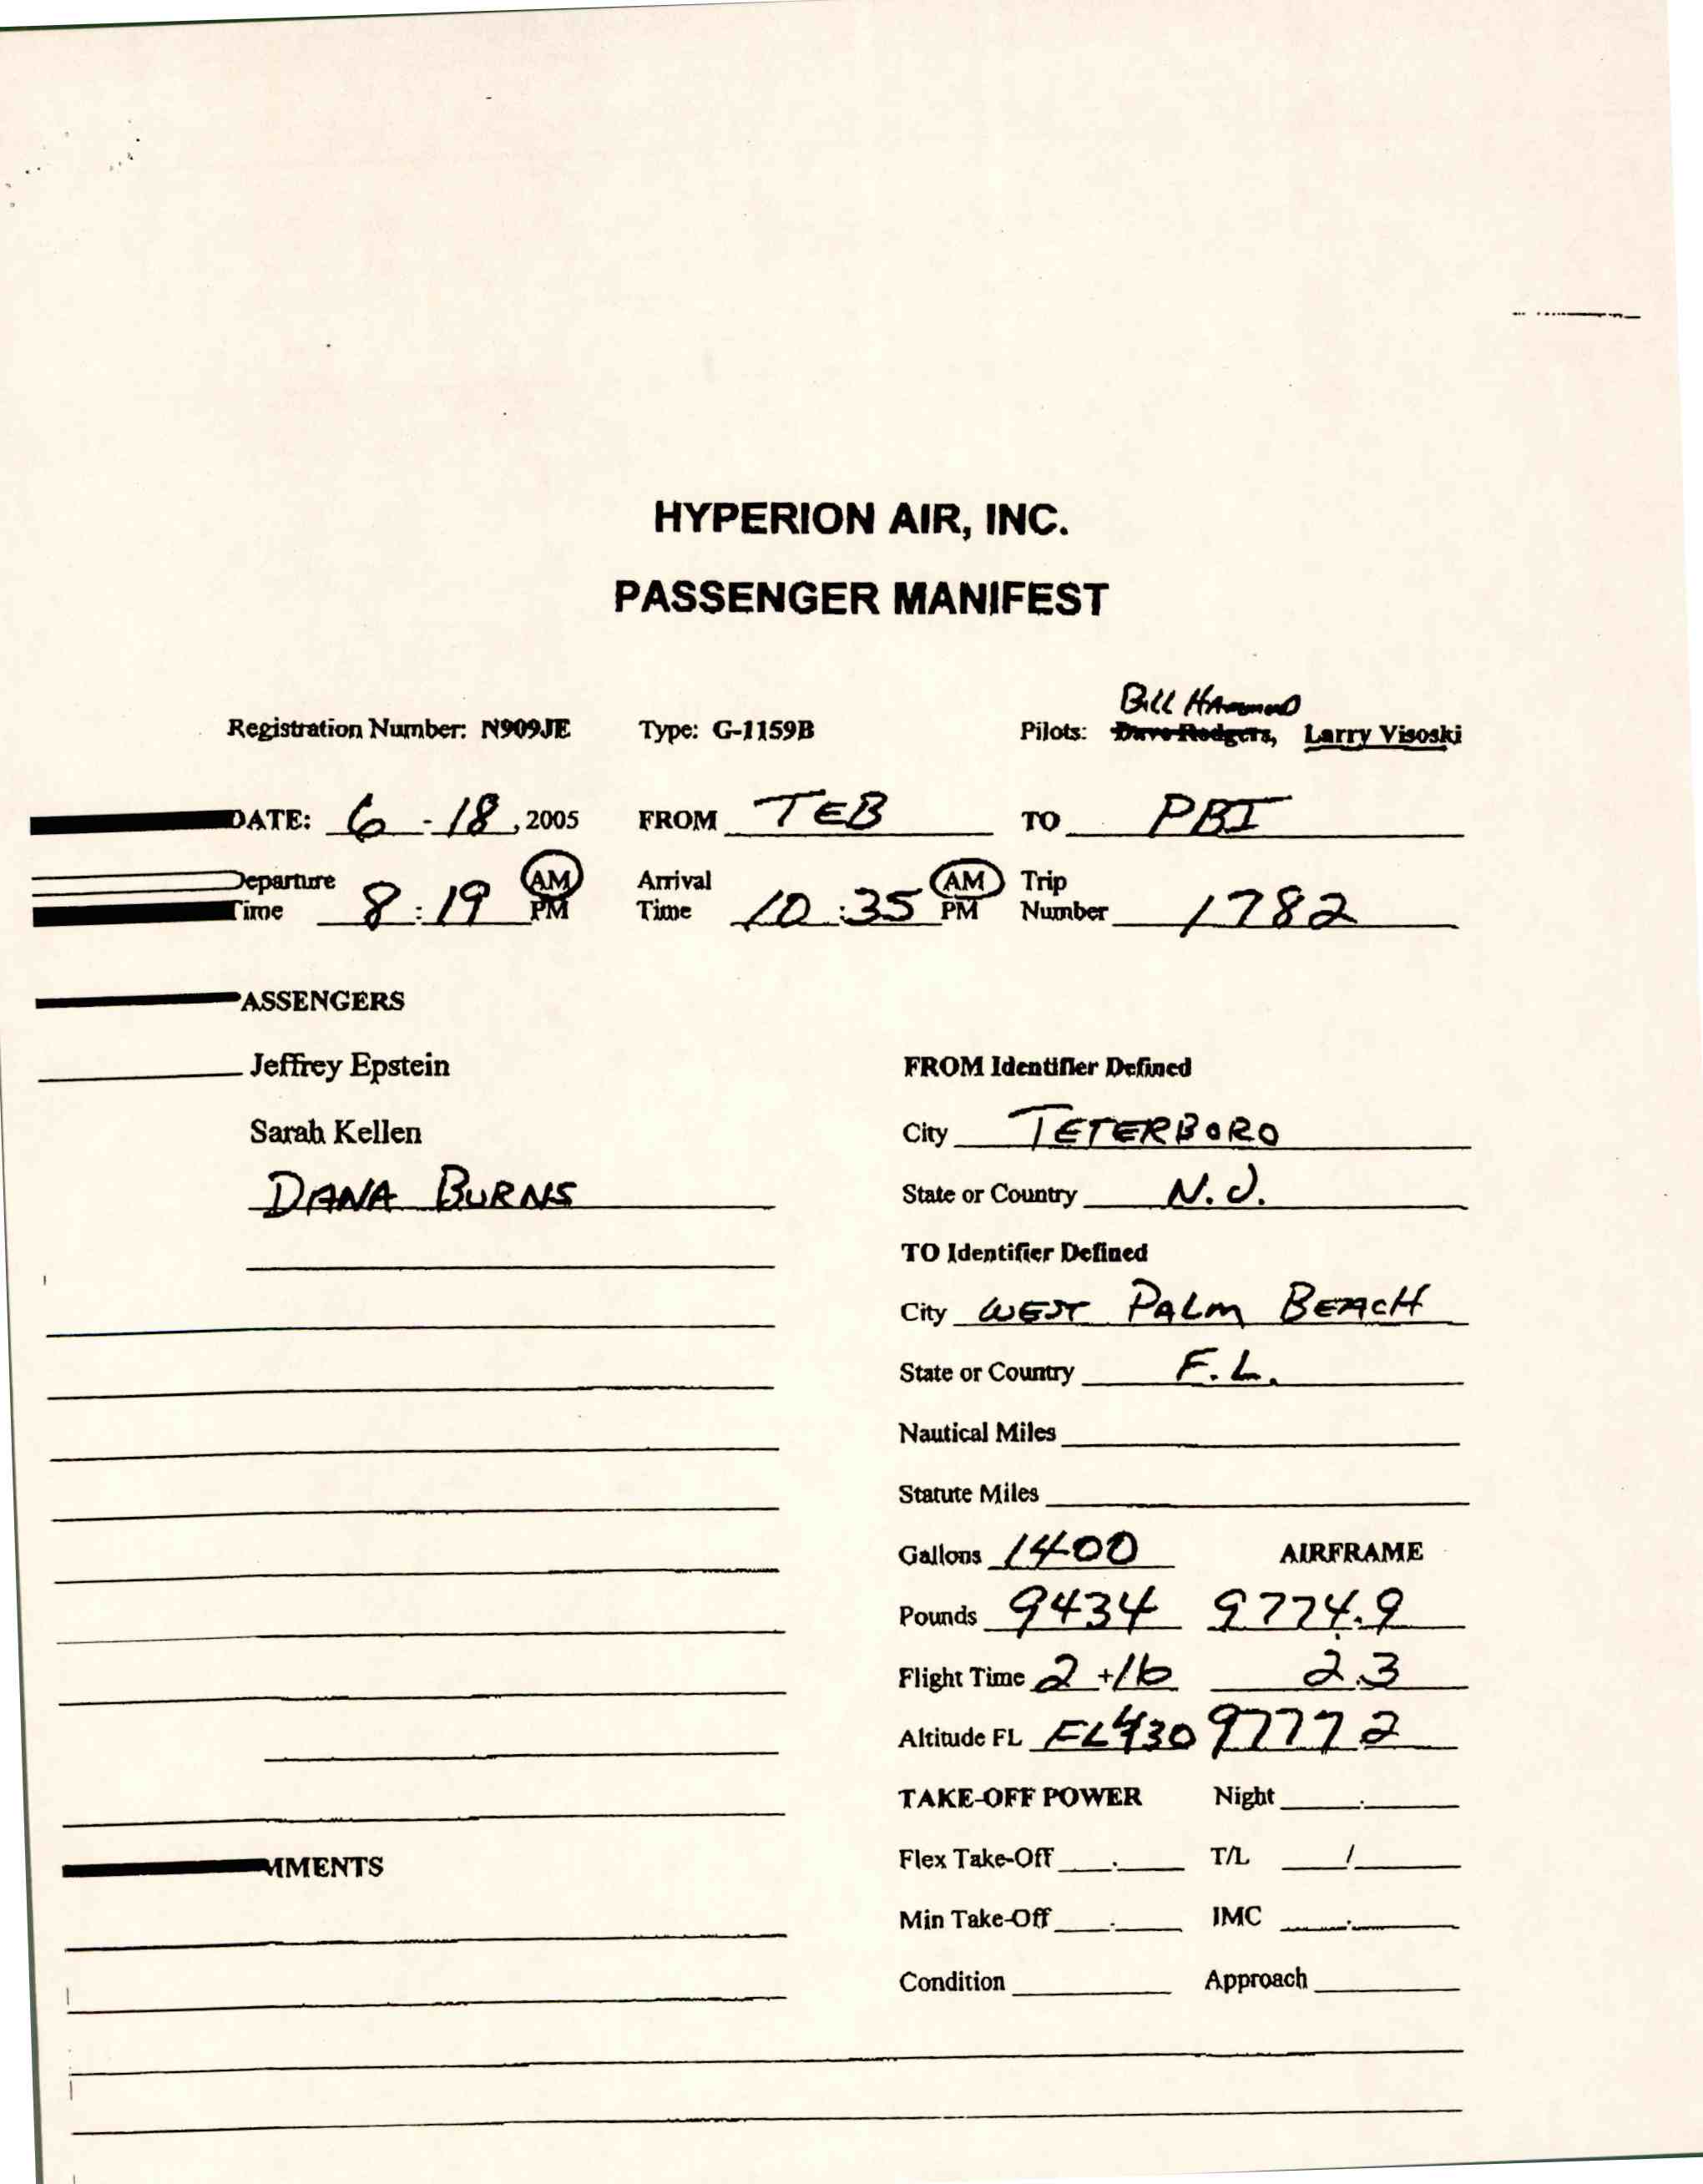 HYPERION AIR, INC.
PASSENGER MANIFEST
Bill Hammond
Registration Number: N909JE Type: G-1159B Pilots: Dave Rodgers, Larry Visoski
DATE: 6-18, 2005 FROM TEB TO PBI
Departure Time 8:19 AM PM Arrival Time 10:35 AM PM Trip Number 1782
ASSENGERS
Jeffrey Epstein FROM Identifier Defined
Sarah Kellen City TETERBORO
DANA BURNS State or Country N.J.
TO Identifier Defined
City WEST PALM BEACH
State or Country F.L.
Nautical Miles
Statute Miles
Gallons 1400 AIRFRAME
Pounds 9434 9774.9
Flight Time 2+16 2.3
Altitude FL FL430 9777 2
TAKE-OFF POWER Night
MMENTS Flex Take-Off T/L /
Min Take-Off IMC
Condition Approach